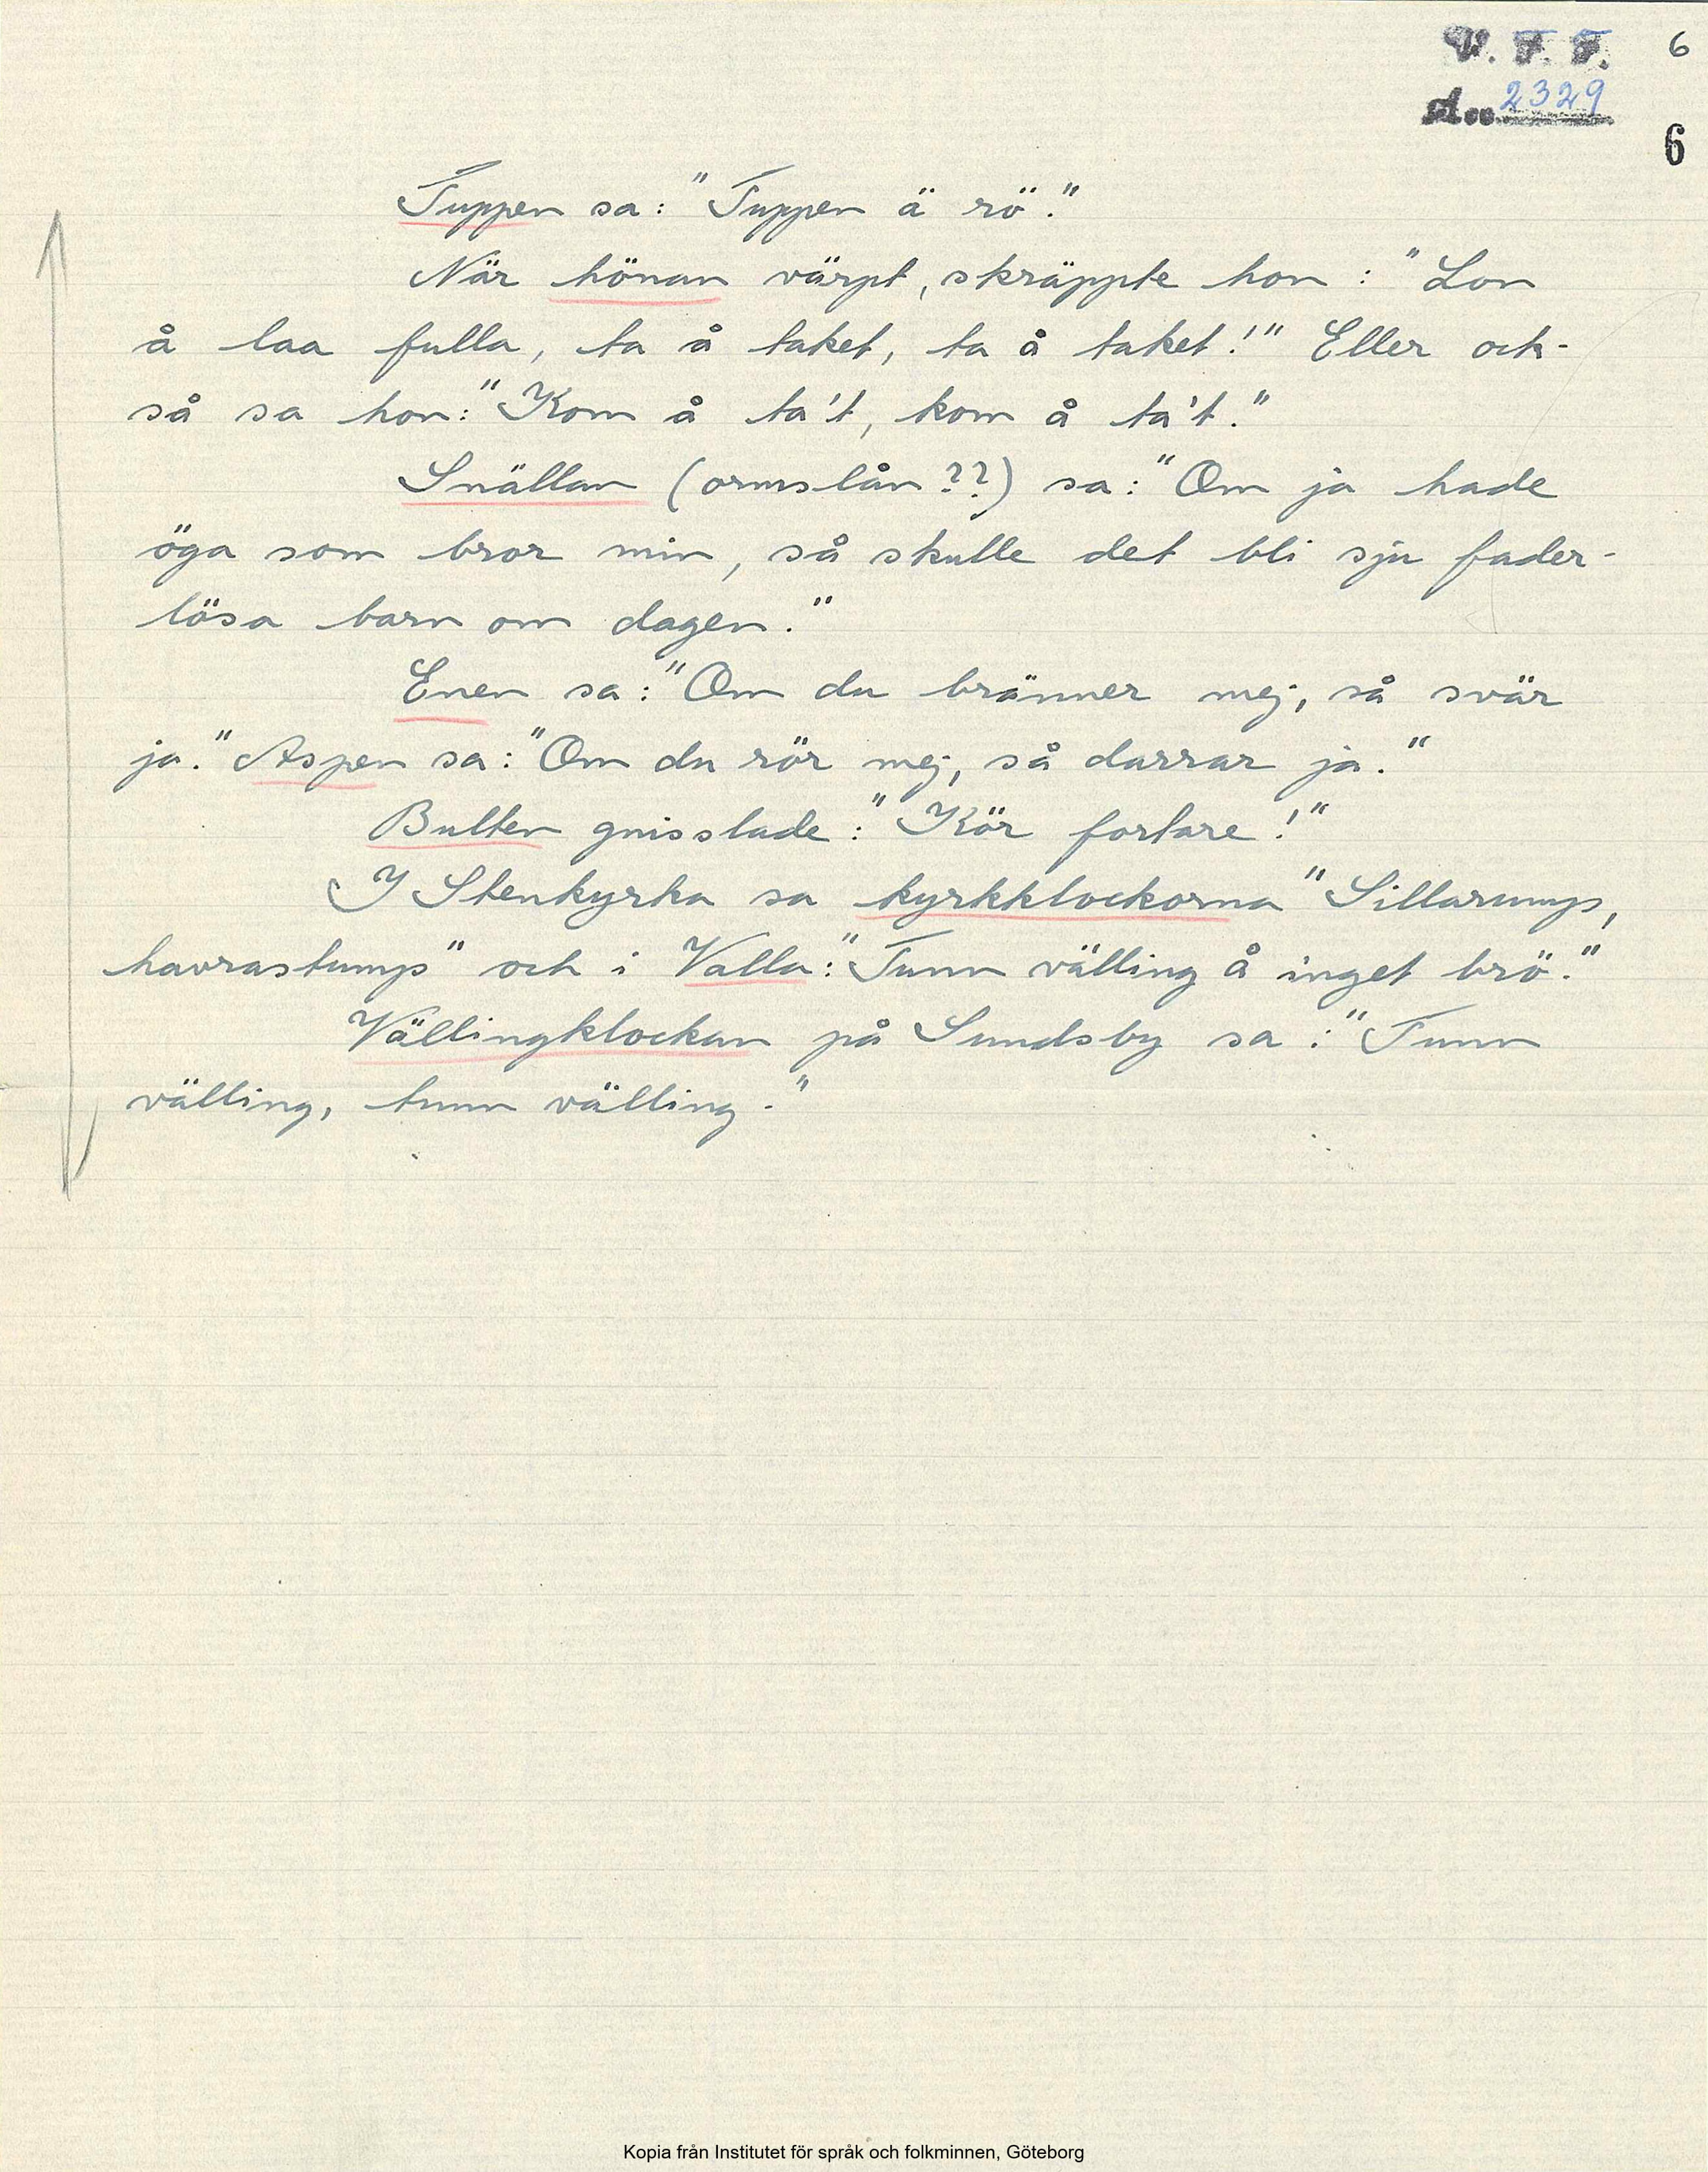 V. F. F. 6
Acc. 2329
6
Tuppen sa: "Tuppen ä rö."
När hönan värpt, skräppte hon: "Lon
å laa fulla, ta å taket, ta å taket!" Eller ock-
så sa hon: "Kom å ta't, kom å ta't."
Snällan (ormslån??) sa: "Om ja hade
öga som bror min, så skulle det bli sju fader-
lösa barn om dagen."
Enen sa: "Om du bränner mej, så svär
ja." Aspen sa: "Om du rör mej, så darrar ja."
Bulten gnisslade: "Kör fortare!"
I Stenkyrka sa kyrkklockorna "Sillarumps,
havrastumps" och i Valla: "Tunn välling å inget brö."
Vällingklockan på Sundsby sa: "Tunn
välling, tunn välling."
Kopia från Institutet för språk och folkminnen, Göteborg